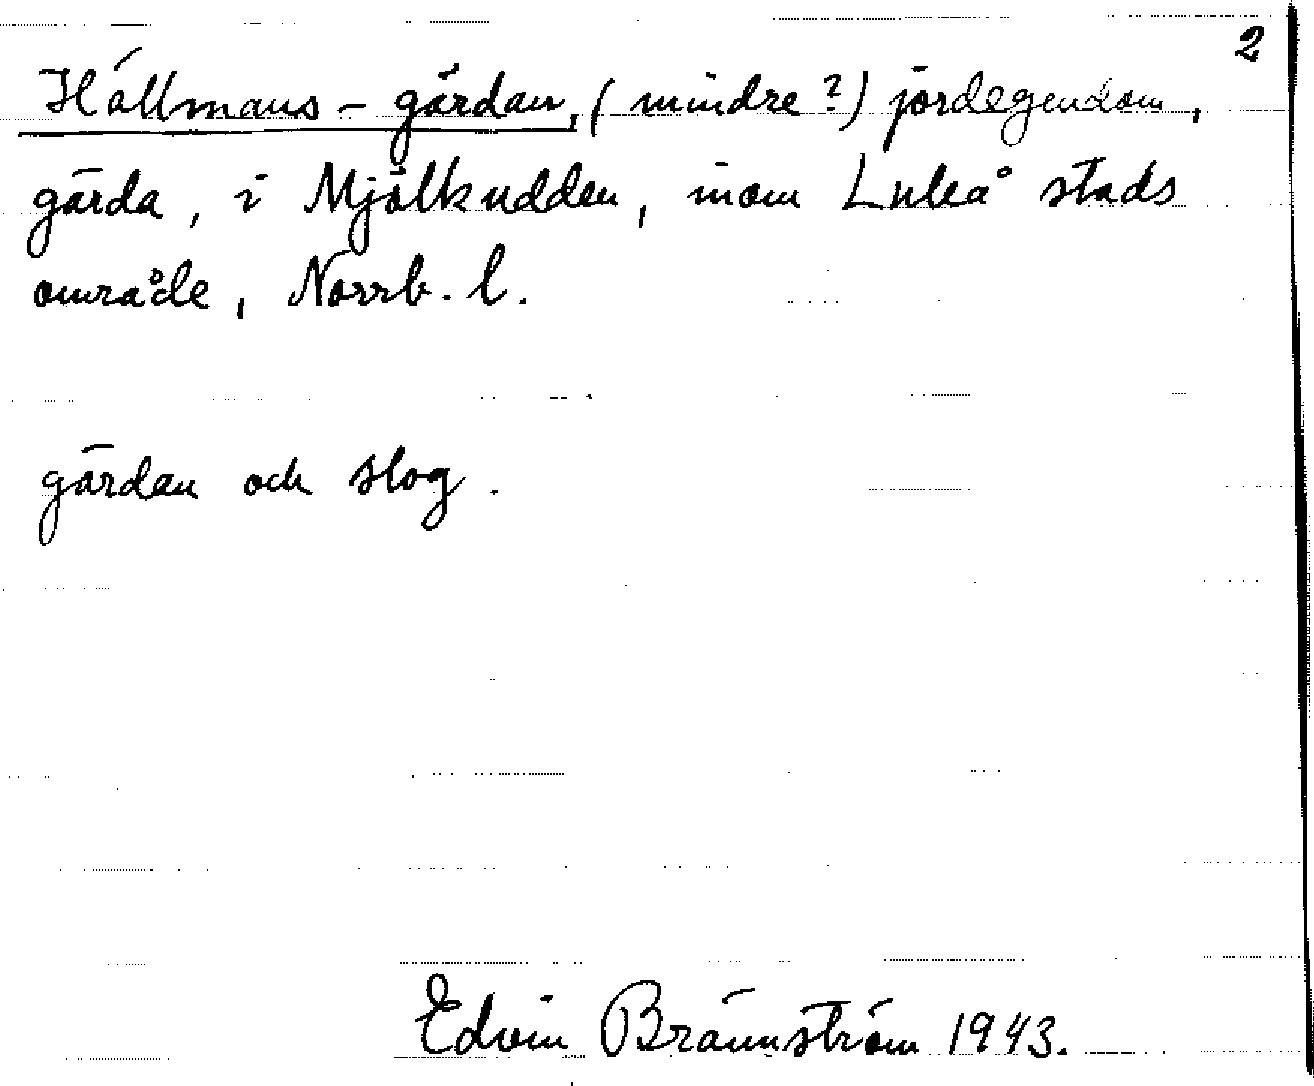 2
Hällmans-gärdan, (mindre?) jordegendom,
gärda, i Mjölkudden, inom Luleå stads
område, Norrb. l.
gärdan och slog.
Edvin Brännström 1943.